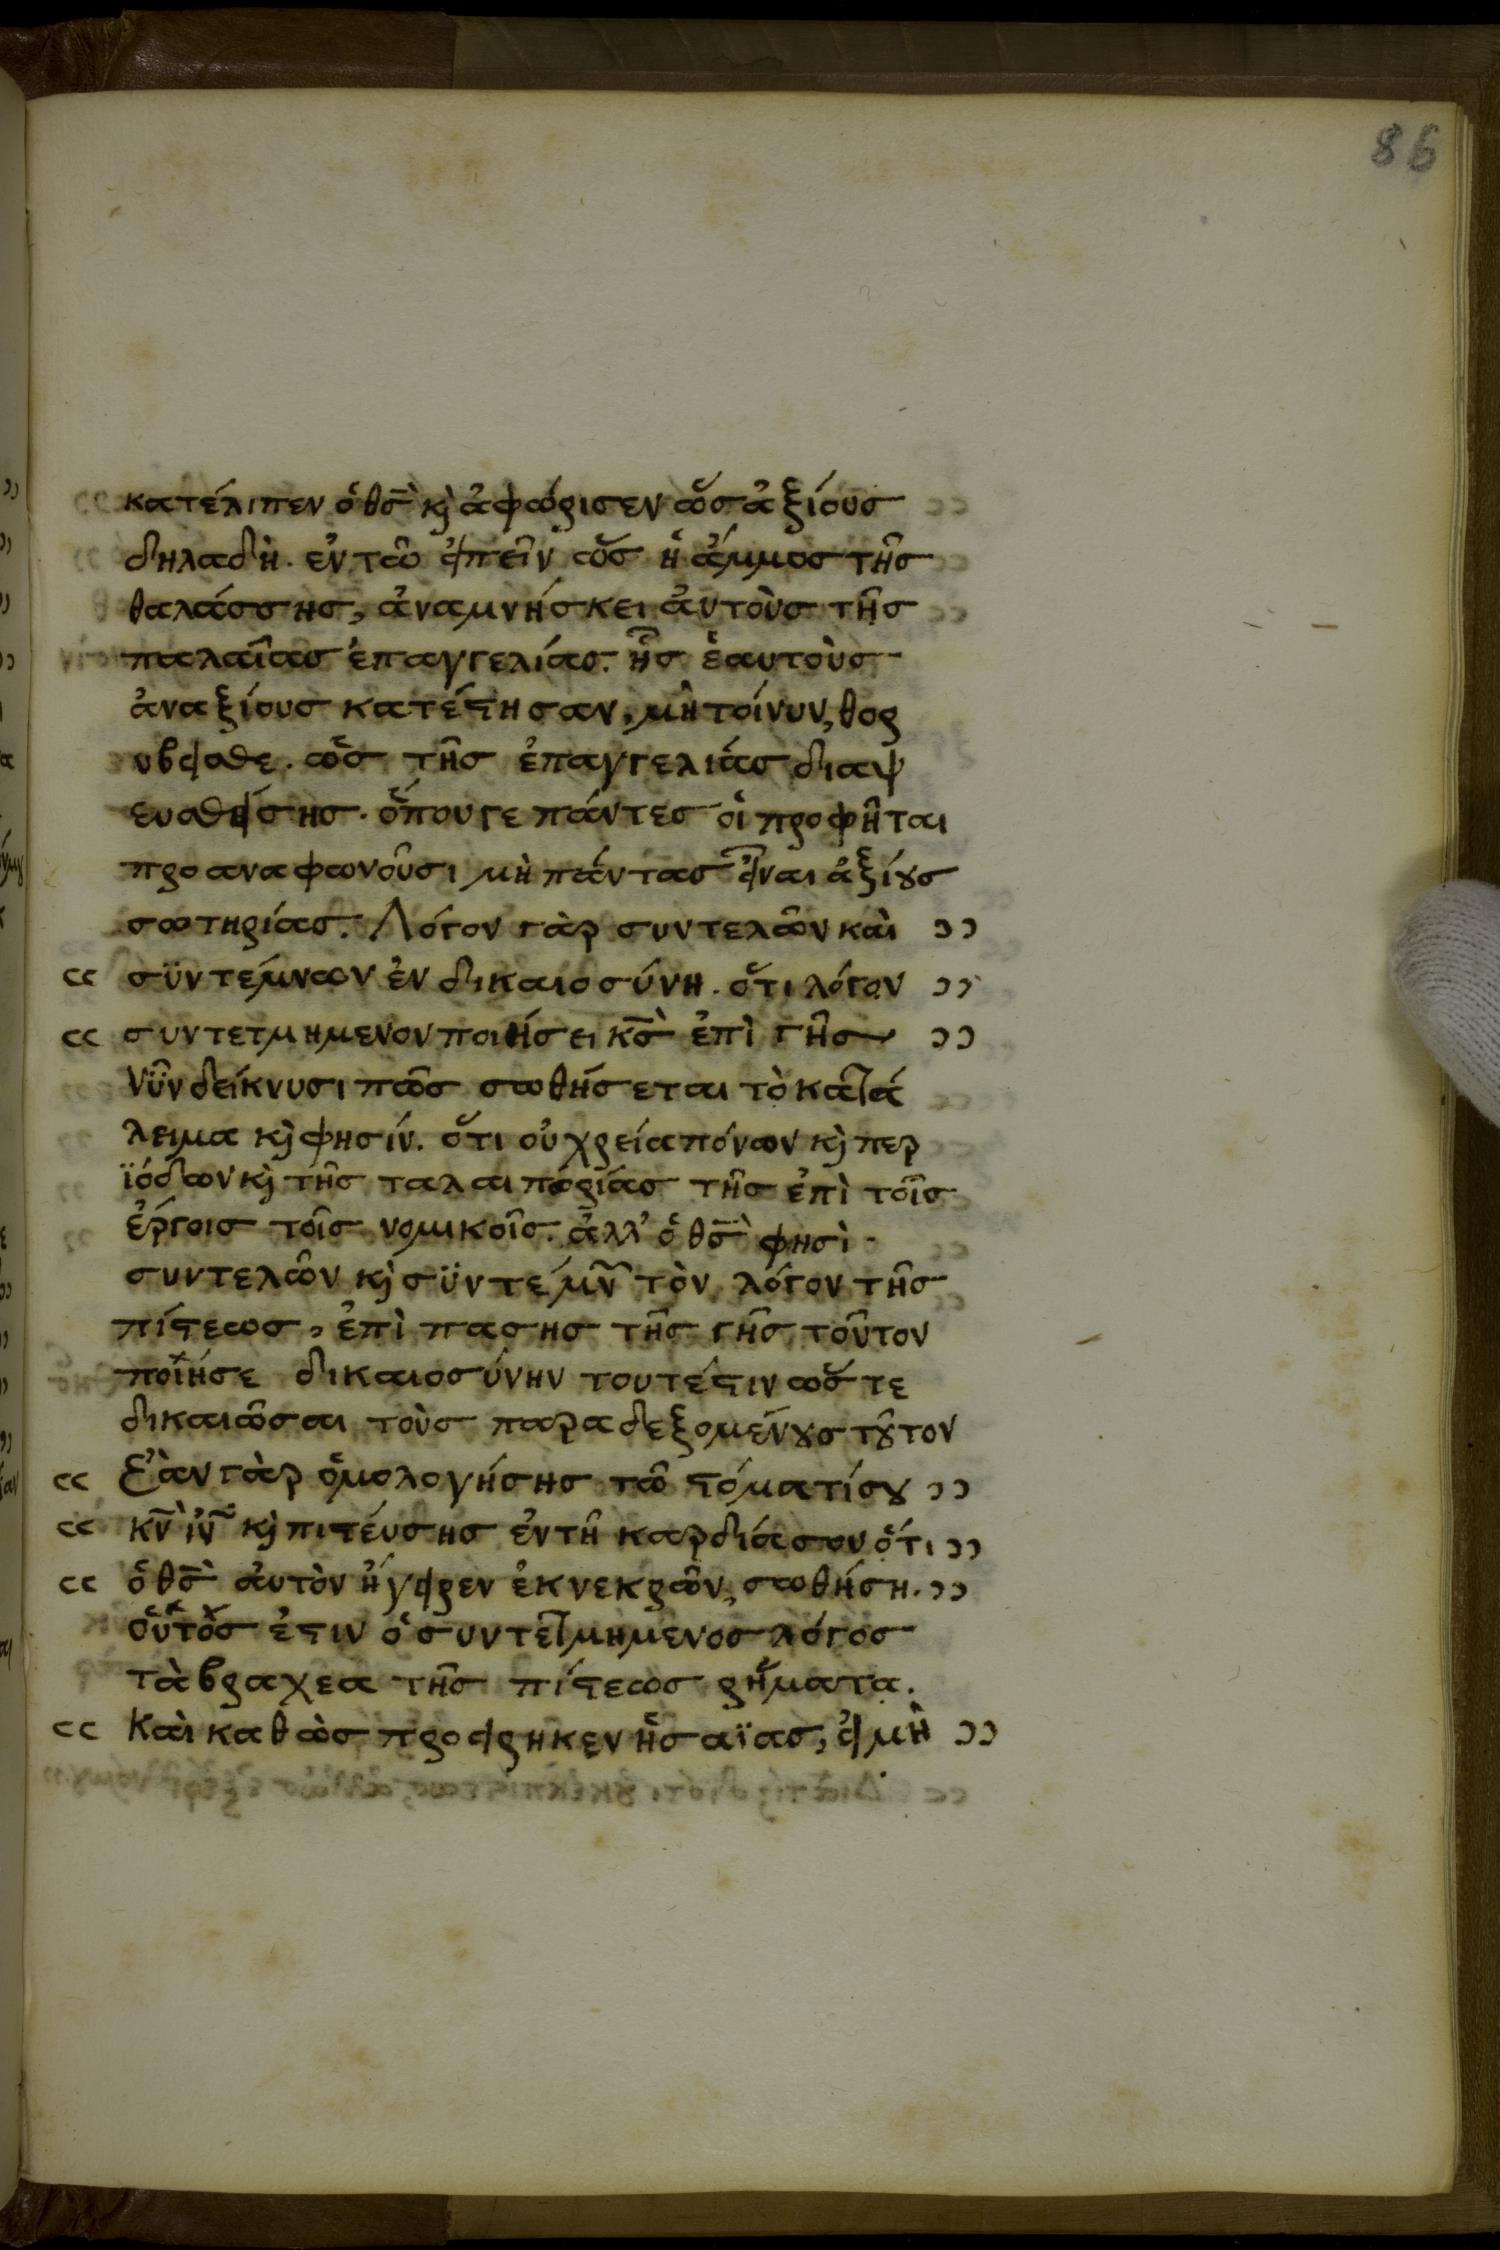 86
κατέλιπεν ὁ θσ̅ κὶ ἀφώρισεν ὡσ ἀξίουσ
δηλαδὴ. ἐν τῶ εἰπεῖν ὡσ ἡ ἄμμοσ τῆσ
θαλάσσησ, ἀναμνήσκει ἀυτοὺσ τῆσ
παλαῖασ ἐπαγγελίασ. ἧσ ἑαυτοὺσ
ἀναξίουσ κατέστησαν, μὴ τοίνυν, θορ
υβεισθε. ὡσ τῆσ ἐπαγγελίασ διαψ
ευσθείσησ. ὅπουγε πάντεσ οἱ προφῆται
προαναφωνοῦσι μὴ πάντασ εἶναι ἀξίουσ
σωτηρίασ. Λόγον γὰρ συντελῶν καὶ ,,
,, σϋντέμνων ἐν δικαιοσύνη. ὅτι λόγον ,,
,, συντετμημενον ποιήσει κσ̅ ἐπὶ γῆσ ,,
Νῦν δείκνυσι πῶσ σωθήσεται τὸ κατά
λειμα κὶ φησίν. ὅτι οὐ χρεία πόνων κὶ περ
ϊόδων κὶ τῆσ ταλαιπορίασ τῆσ ἐπὶ τοῖσ
ἔργοισ τοῖσ νομικοῖσ. ἀλλ' ὁ θσ̅ φησὶ
συντελῶν κὶ σϋντέμν͂ τὸν λόγον τῆσ
πίστεωσ, ἐπὶ πασησ τῆσ γῆσ τοῦτον
ποϊήσε δικαιοσύνην τουτέστιν ὥστε
δικαιῶσαι τοὺσ παραδεξομένουσ τοῦτον
,, Ἐὰν γὰρ ὁμολογήσησ τῶ στόματί σου ,,
,, κν̅ ιν̅ κὶ πιτέυσησ ἐν τῆ καρδιά σου ὅτι ,,
,, ὁ θσ̅ ἀυτὸν ἤγειρεν ἐκ νεκρῶν, σωθήση. ,,
οὗτοσ ἐστιν ὁ συντετμημενοσ λόγοσ
τὰ βραχεα τῆσ πίστεωσ ρήματα.
,, Καὶ καθὼσ προειρηκεν ἡσαϊασ, εἰ μὴ ,,